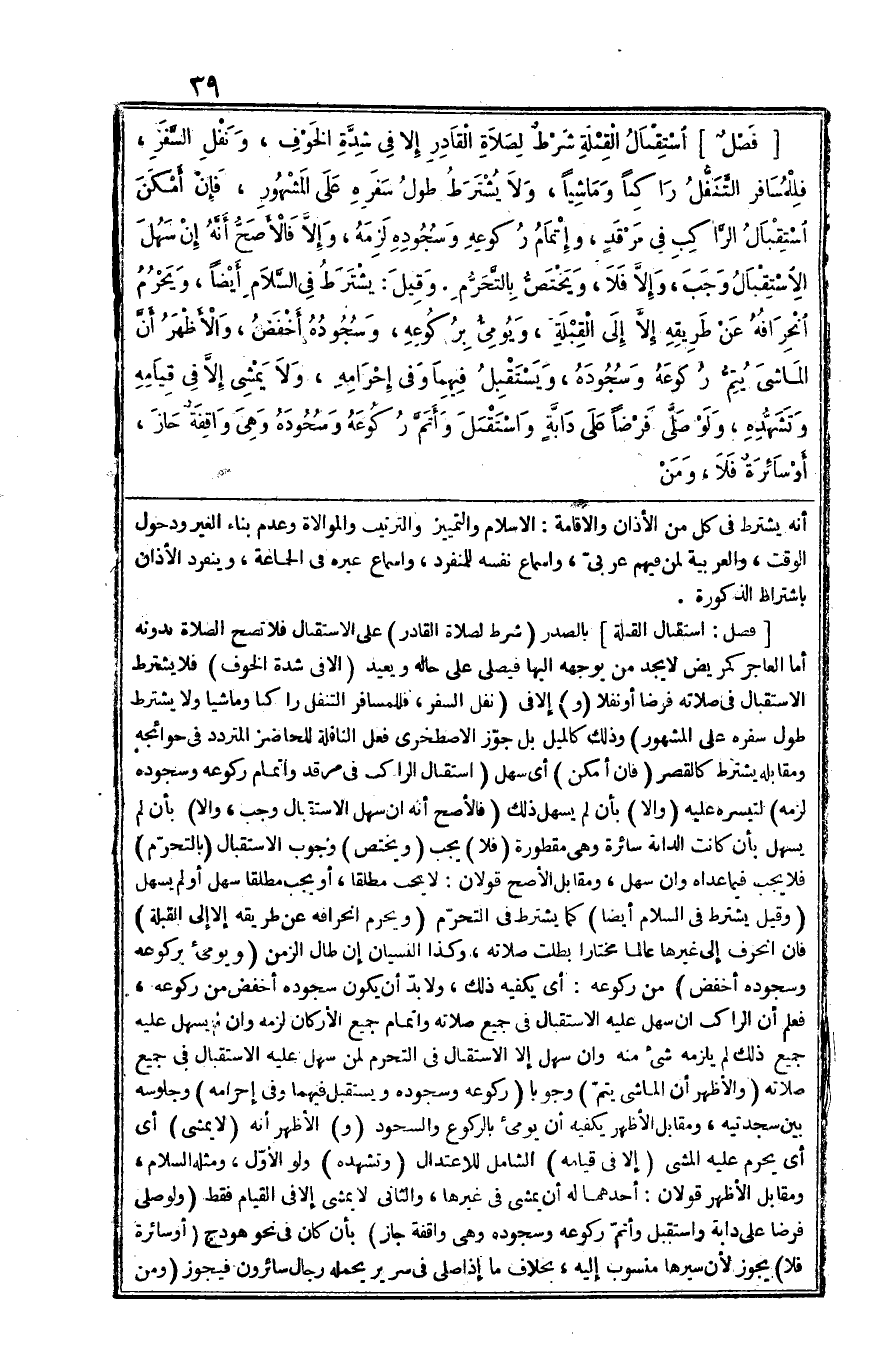 ٣٩
[ فَصْلٌ ] اُسْتِقْبَالُ الْقِبْلَةِ شَرْطٌ لِصَلَاةِ الْقَادِرِ إِلا فِي شِدَّةِ الْخَوْفِ ، وَنَفْلِ السَّفَرِ ،
فَلِلْمُسَافِرِ التَّنَفُّلُ رَاكِباً وَمَاشِياً ، وَلاَ يُشْتَرَطُ طُولُ سَفَرِهِ عَلَى الْمَشْهُورِ ، فَإِنْ أَمْكَنَ
اُسْتِقْبَالُ الرَّاكِبِ فِي مَرْقَدٍ ، وَإِتْمَامُ رُكُوعِهِ وَسُجُودِهِ لَزِمَهُ ، وَإِلاَّ فَالْأَصَحُّ أَنَّهُ إِنْ سَهُلَ
الِاُسْتِقْبَالُ وَجَبَ ، وَإِلاَّ فَلَا ، وَيَخْتَصُّ بِالتَّحَرُّمِ . وَقِيلَ : يُشْتَرَطُ فِي السَّلَامِ أَيْضاً ، وَيَحْرُمُ
اُنْحِرَافُهُ عَنْ طَرِيقِهِ إِلاَّ إِلَى الْقِبْلَةِ ، وَيُومِئُ بِرُكُوعِهِ ، وَسُجُودُهُ أَخْفَضُ ، وَالْأَظْهَرُ أَنَّ
الْمَاشِيَ يُتِمُّ رُكُوعَهُ وَسُجُودَهُ ، وَيَسْتَقْبِلُ فِيهِمَا وَفِي إِحْرَامِهِ ، وَلاَ يَمْشِي إِلاَّ فِي قِيَامِهِ
وَتَشَهُّدِهِ ، وَلَوْ صَلَّى فَرْضاً عَلَى دَابَّةٍ وَاسْتَقْبَلَ وَأَتَمَّ رُكُوعَهُ وَسُجُودَهُ وَهِيَ وَاقِفَةٌ جَازَ ،
أَوْ سَائِرَةٌ فَلَا ، وَمَنْ
أنه يشترط فى كل من الأذان والاقامة : الاسلام والتمييز والترتيب والموالاة وعدم بناء الغير ودخول
الوقت ، والعربية لمن فيهم عربىّ ، واسماع نفسه للمنفرد ، واسماع غيره فى الجماعة ، وينفرد الأذان
باشتراط الذكورة .
[ فصل : استقبال القبلة ] بالصدر ( شرط لصلاة القادر ) على الاستقبال فلا تصح الصلاة بدونه
أما العاجز كمريض لايجد من يوجهه اليها فيصلى على حاله ويعيد ( الا فى شدة الخوف ) فلايشترط
الاستقبال فى صلاته فرضا أونفلا ( و ) إلافى ( نفل السفر ، فللمسافر التنفل راكبا وماشيا ولا يشترط
طول سفره على المشهور ) وذلك كالميل بل جوّز الاصطخرى فعل النافلة للحاضر المتردد فى حوائجه
ومقابله يشترط كالقصر ( فان أمكن ) أى سهل ( استقبال الراكب فى مرقد واتمام ركوعه وسجوده
لزمه ) لتيسره عليه ( والا ) بأن لم يسهل ذلك ( فالأصح أنه ان سهل الاستقبال وجب ، والا ) بأن لم
يسهل بأن كانت الدابة سائرة وهى مقطورة ( فلا ) يجب ( ويختص ) وجوب الاستقبال ( بالتحرّم )
فلايجب فيما عداه وان سهل ، ومقابل الأصح قولان : لايجب مطلقا ، أو يجب مطلقا سهل أولم يسهل
( وقيل يشترط فى السلام أيضا ) كما يشترط فى التحرّم ( ويحرم انحرافه عن طريقه إلا إلى القبلة )
فان انحرف إلى غيرها عالما مختارا بطلت صلاته ، وكذا النسيان إن طال الزمن ( ويومىٔ بركوعه
وسجوده أخفض ) من ركوعه : أى يكفيه ذلك ، ولابدّ أن يكون سجوده أخفض من ركوعه ،
فعلم أن الراكب ان سهل عليه الاستقبال فى جميع صلاته واتمام جميع الأركان لزمه وان لم يسهل عليه
جميع ذلك لم يلزمه شىٔ منه وان سهل إلا الاستقبال فى التحرم لمن سهل عليه الاستقبال فى جميع
صلاته ( والأظهر أن الماشى يتمّ ) وجوبا ( ركوعه وسجوده ويستقبل فيهما وفى إحرامه ) وجلوسه
بين سجدتيه ، ومقابل الأظهر يكفيه أن يومىٔ بالركوع والسجود ( و ) الأظهر أنه ( لايمشى ) أى
أى يحرم عليه المشى ( إلا فى قيامه ) الشامل للاعتدال ( وتشهده ) ولو الأوّل ، ومثله السلام ،
ومقابل الأظهر قولان : أحدهما له أن يمشى فى غيرها ، والثانى لا يمشى إلافى القيام فقط ( ولوصلى
فرضا على دابة واستقبل وأتمّ ركوعه وسجوده وهى واقفة جاز ) بأن كان فى نحو هودج ( أوسائرة
فلا ) يجوز لأن سيرها منسوب إليه ، بخلاف ما إذاصلى فى سرير يحمله رجال سائرون فيجوز ( ومن